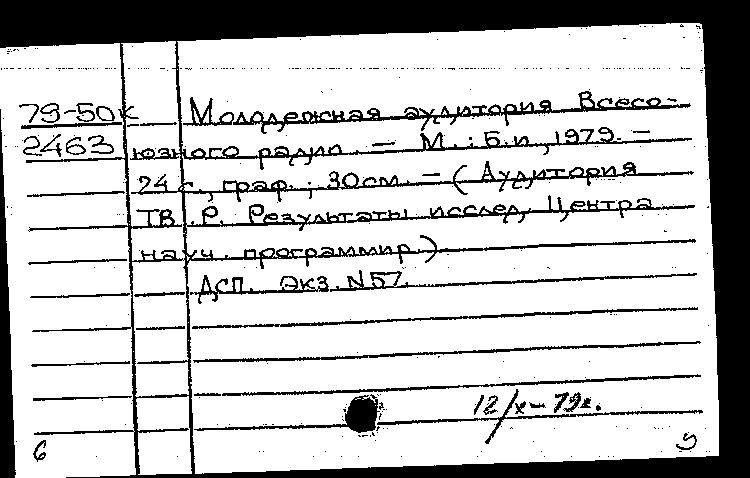 79-50к Молодежная аудитория Всесо-
2463 юзного радио. — М.: Б.и., 1979. —
24 с., граф.; 30см. — (Аудитория
ТВ Р. Результаты исслед. Центра
науч. программир.)
ДСП. Экз. N57.
12/х-79г.
6